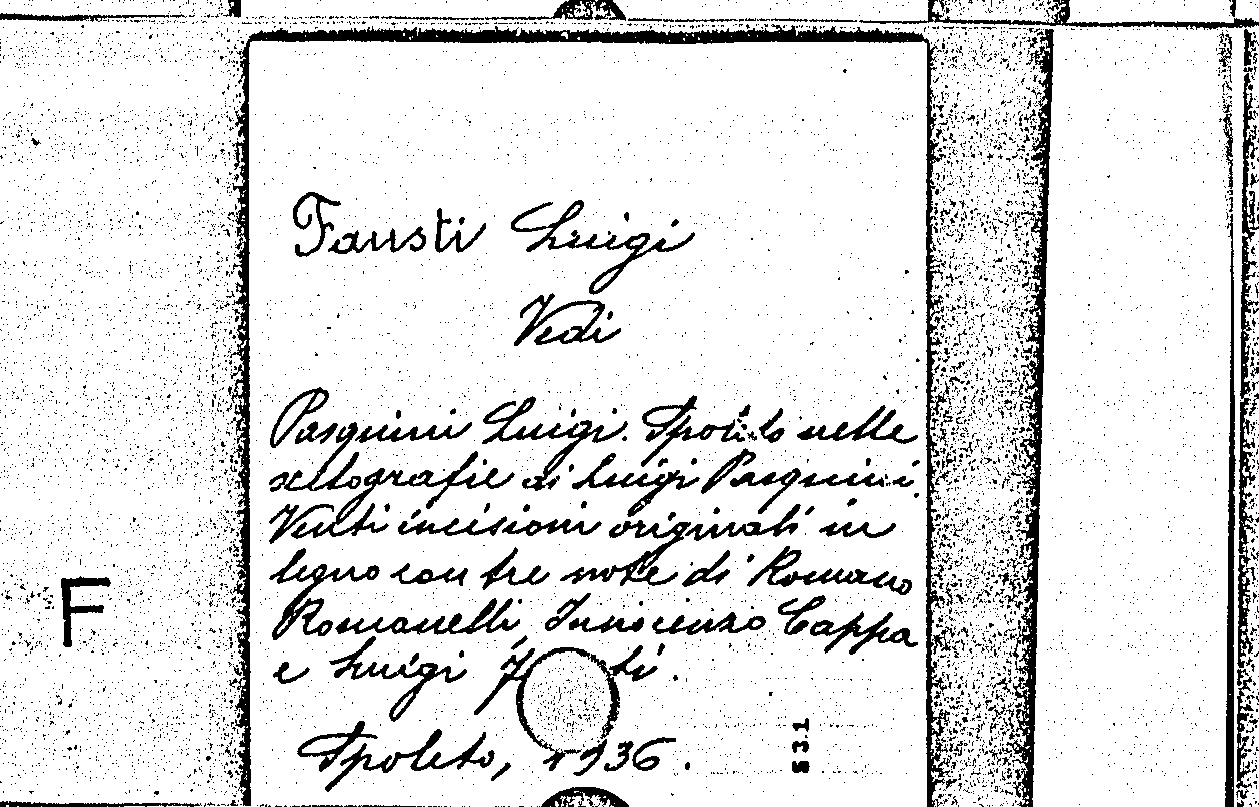 Fausti Luigi
Vedi
Pasquini Luigi. Spoleto nelle
xilografie di Luigi Pasquini.
Venti incisioni originali in
legno con tre note di Romano
Romanelli, Innocenzo Cappa
e Luigi F ti.
Spoleto, 1936.
531
F